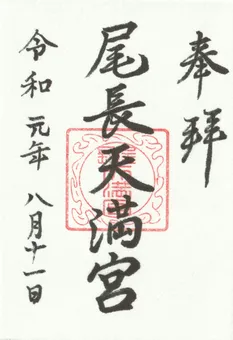 奉拝
尾長天満宮
令和元年八月十一日